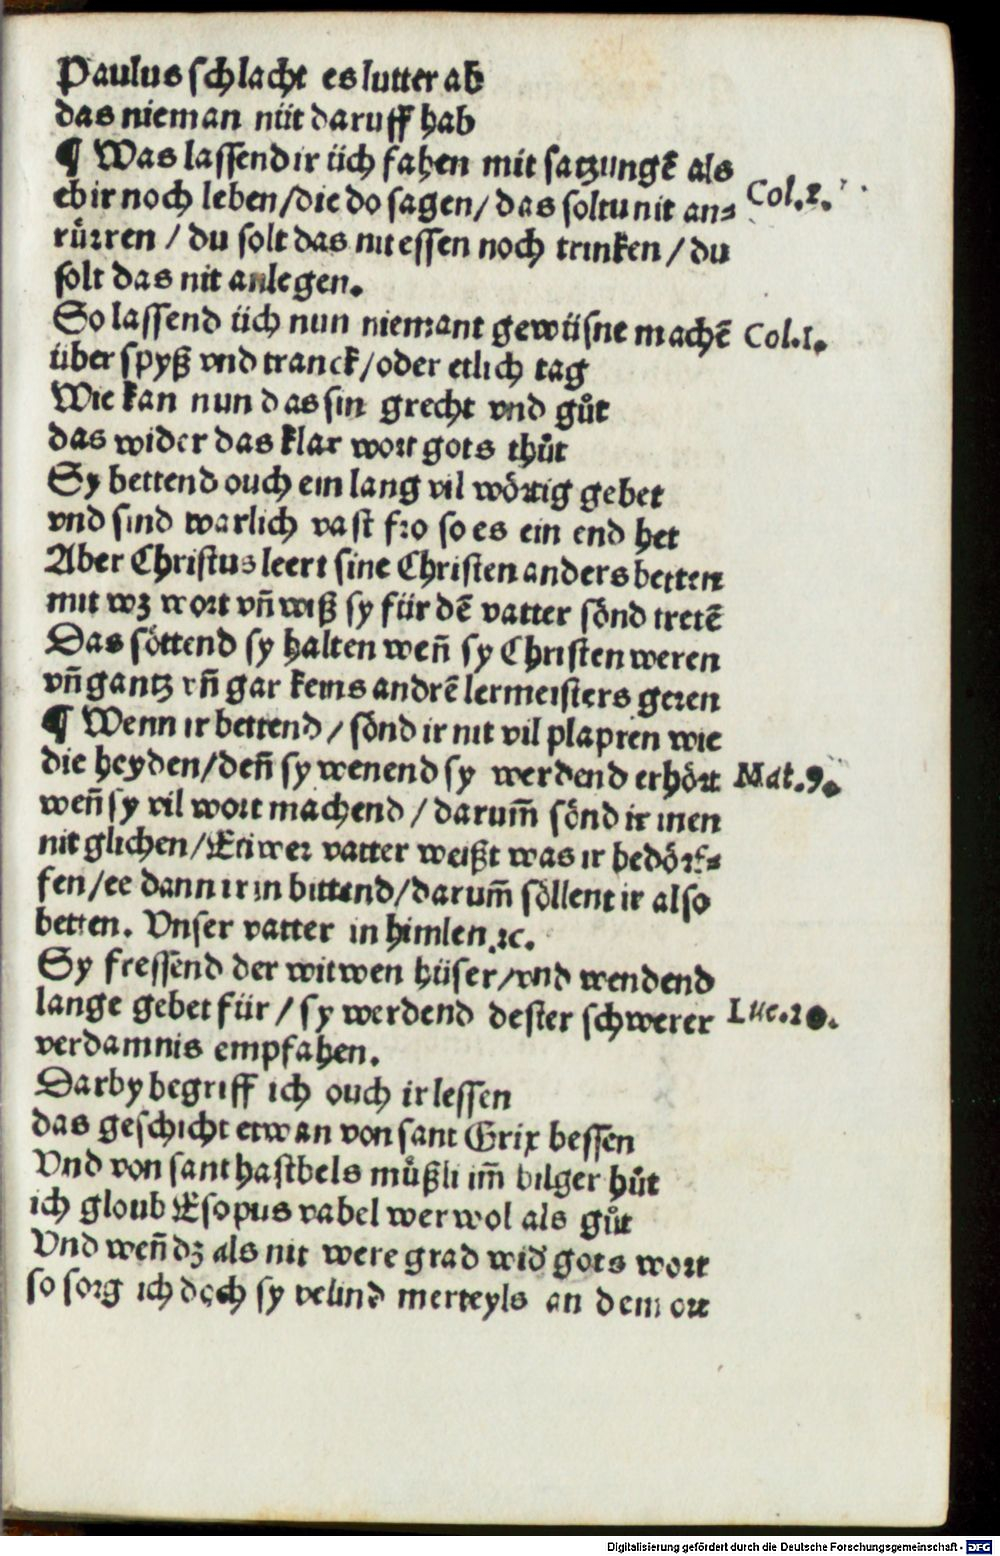 Paulus schlacht es lutter ab
das nieman nüt daruff hab
¶ Was lassend ir üch fahen mit satzungē als
eb ir noch leben / die do sagen / das solt u nit an⸗ Col. 2.
rürren / du solt das nit essen noch trinken / du
solt das nit anlegen.
So lassend üch nun niemant gewüsne machē Col. 1.
über spyß vnd tranck / oder etlich tag
Wie kan nun das sin grecht vnd gůt
das wider das klar wort gots thůt
Sy bettend ouch ein lang vil wörtig gebet
vnd sind warlich vast fro so es ein end het
Aber Christus leert sine Christen anders betten
mit wz wort vn̄ wiß sy für dē vatter sönd tretē
Das söttend sy halten wen̄ sy Christen weren
vn̄ gantz vn̄ gar keins andrē lermeisters geren
¶ Wenn ir bettend / sönd ir nit vil plapren wie
die heyden / den̄ sy wenend sy werdend erhört Mat. 9.
wen̄ sy vil wort machend / darum̄ sönd ir inen
nit glichen / Etiwer vatter weißt was ir bedörf⸗
fen / ee dann ir in bittend / darum̄ söllent ir also
betten. Vnser vatter in himlen ꝛc.
Sy fressend der witwen hüser / vnd wendend
lange gebet für / sy werdend dester schwerer Luc. 20.
verdamnis empfahen.
Darby begriff ich ouch ir lessen
das geschicht etwan von sant Grix bessen
Vnd von sant hastbels můßli im̄ bilger hůt
ich gloub Esopus vabel wer wol als gůt
Vnd wen̄ dz als nit were grad wid' gots wort
so sorg ich doch sy velind merteyls an dem ort
Digitalisierung gefördert durch die Deutsche Forschungsgemeinschaft - DFG